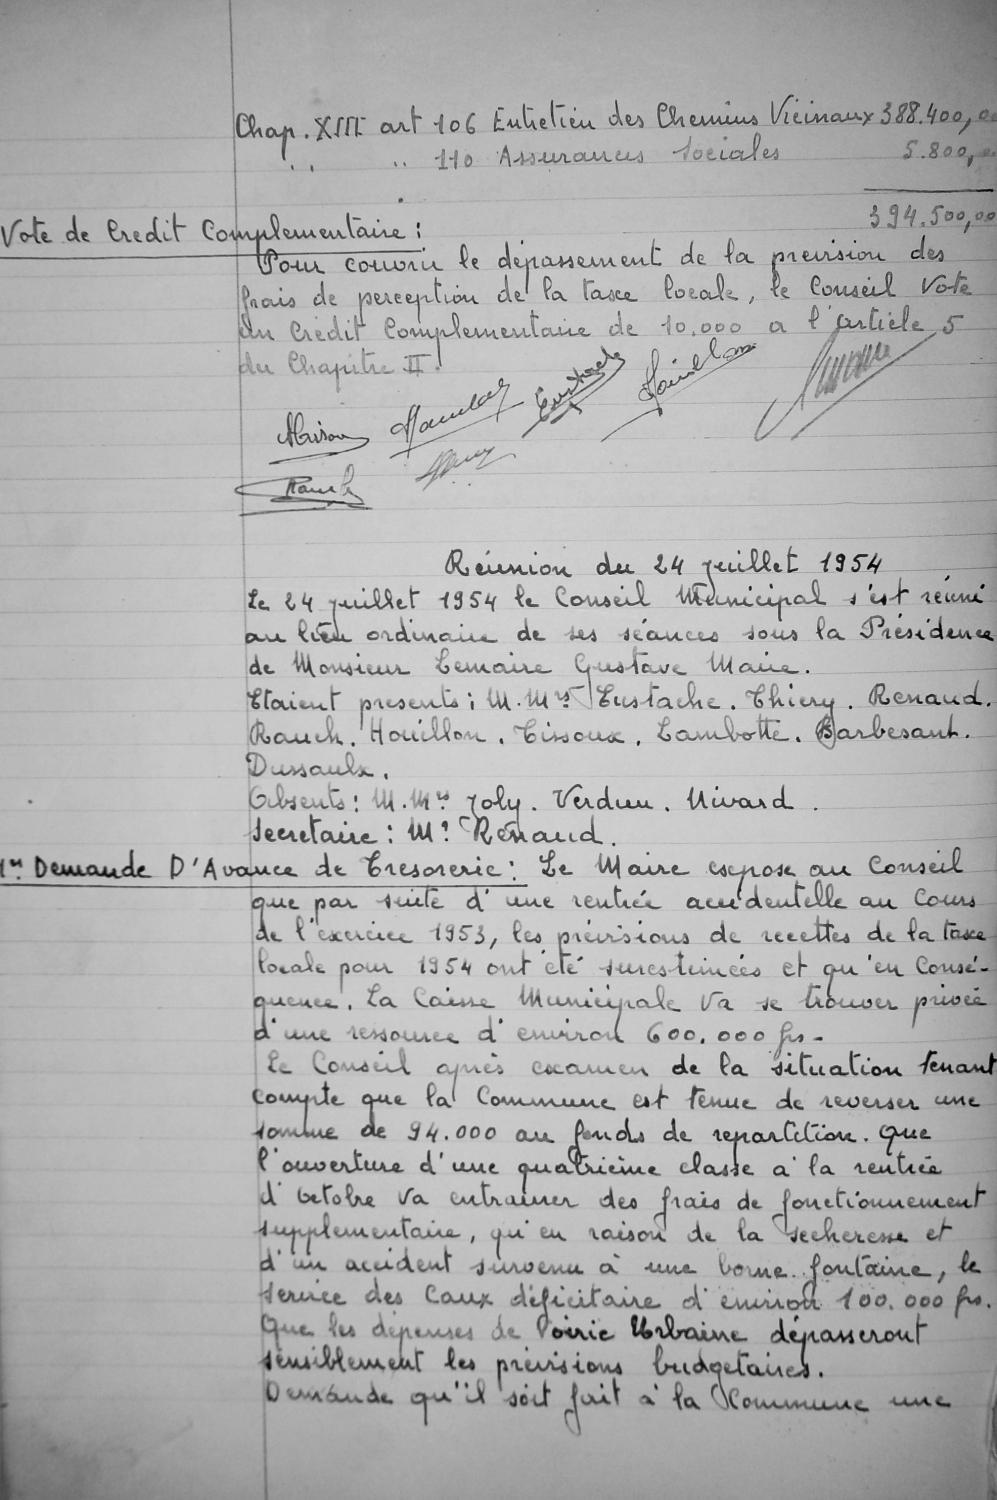 Chap. XIII art 106 Entretien des Chemins Vicinaux 388.400,00
" " 110 Assurances Sociales 5.800,00
394.500,00
Vote de Credit Complementaire :
Pour couvrir le dépassement de la prevision des
frais de perception de la taxe locale, le Conseil Vote
un Crédit Complementaire de 10.000 a l'article 5
du Chapitre II.
Eustache Houillon
Rauch
Réunion du 24 juillet 1954
Le 24 juillet 1954 le Conseil Municipal s'est réuni
au lieu ordinaire de ses séances sous la Présidence
de Monsieur Lemaire Gustave Maire.
Etaient presents : M.Mrs Eustache. Thiery. Renaud.
Rauch. Houillon. Tissoux. Lambotte. Barbesant.
Dussaulx.
Absents : M.Mrs Joly. Verdun. Nivard.
Secretaire : Mr Renaud.
1er Demande D'Avance de Tresorerie : Le Maire expose au Conseil
que par suite d'une rentrée accidentelle au Cours
de l'exercice 1953, les prévisions de recettes de la taxe
locale pour 1954 ont été surestimées et qu'en Consé-
quence. La Caisse Municipale Va se trouver privée
d'une ressource d'environ 600.000 frs -
Le Conseil après examen de la situation tenant
compte que la Commune est tenue de reverser une
somme de 94.000 au fonds de repartition. Que
l'ouverture d'une quatrième classe à la rentrée
d'octobre Va entrainer des frais de fonctionnement
supplementaire, qu'en raison de la secheresse et
d'un accident survenu à une borne fontaine, le
service des Eaux déficitaire d'environ 100.000 frs.
Que les dépenses de Voirie Urbaine dépasseront
sensiblement les prévisions budgetaires.
Demande qu'il soit fait à la Commune une